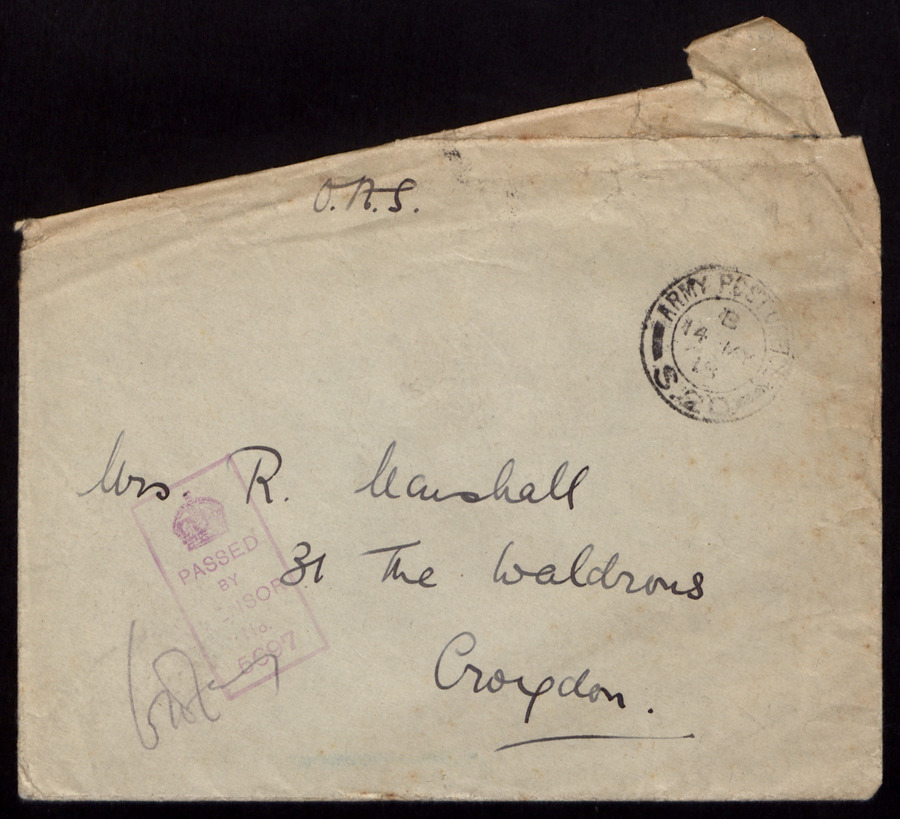 O.A.S.
ARMY POST OFFICE
B
14 MY
18
Mrs. R. Marshall
31 The Waldrons
Croydon.
PASSED
BY
No.
5697